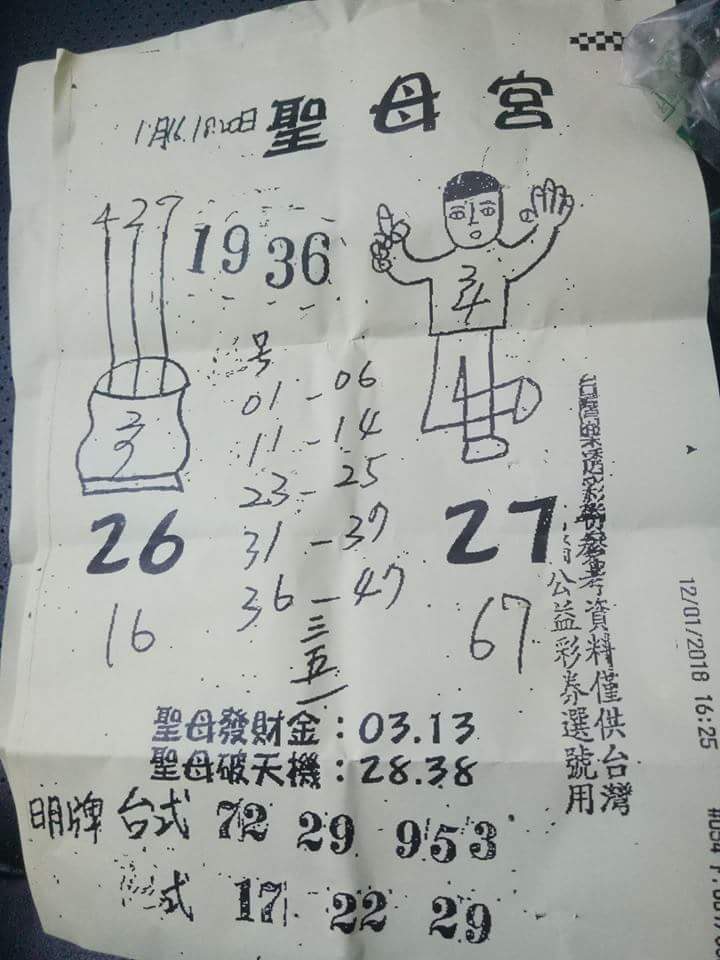 聖母宮
427
19 36
34
号
01-06
11-14
23-25
31-37
36-47
三五一
26
27
16
67
聖母發財金:03.13
聖母破天機:28.38
明牌 台式 72 29 953
式 17 22 29
資料僅供台灣
公益彩券選號用
12/01/2018 16:25